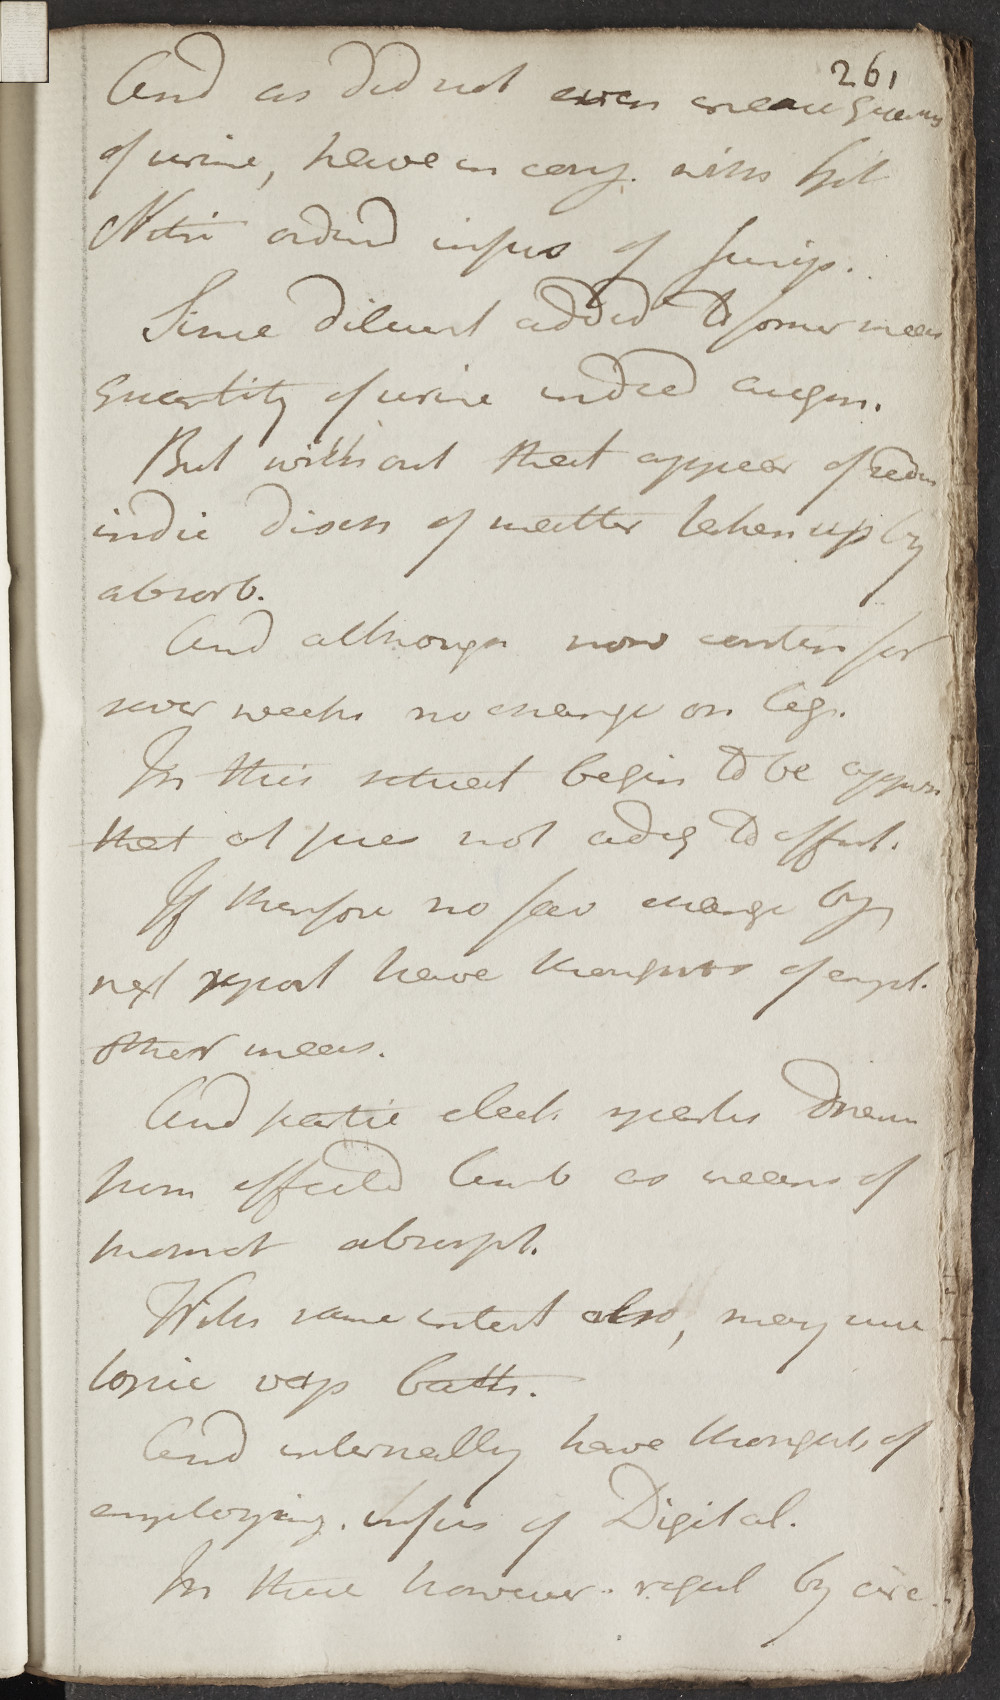 261
And as did not even increase quantity
of urine, have in conj. with Spt
Nitri ordered infus of Junip.
Since diluent added to former means
quantity of urine indeed augm.
But without that appear of sedim
indic disch of matter taken up by
absorb.
And although now contin for
sever weeks no change on legs.
In this situat begin to be apprehens
that at pres not adeq to effect.
If therefore no fav change by
next report have thoughts of empl.
other means.
And partic elect sparks drawn
from affected limb as means of
promot absorpt.
With same intent also, may use
tonic vap bath.
And internally have thoughts of
employing. infus of Digital.
In these however. regul by circ.